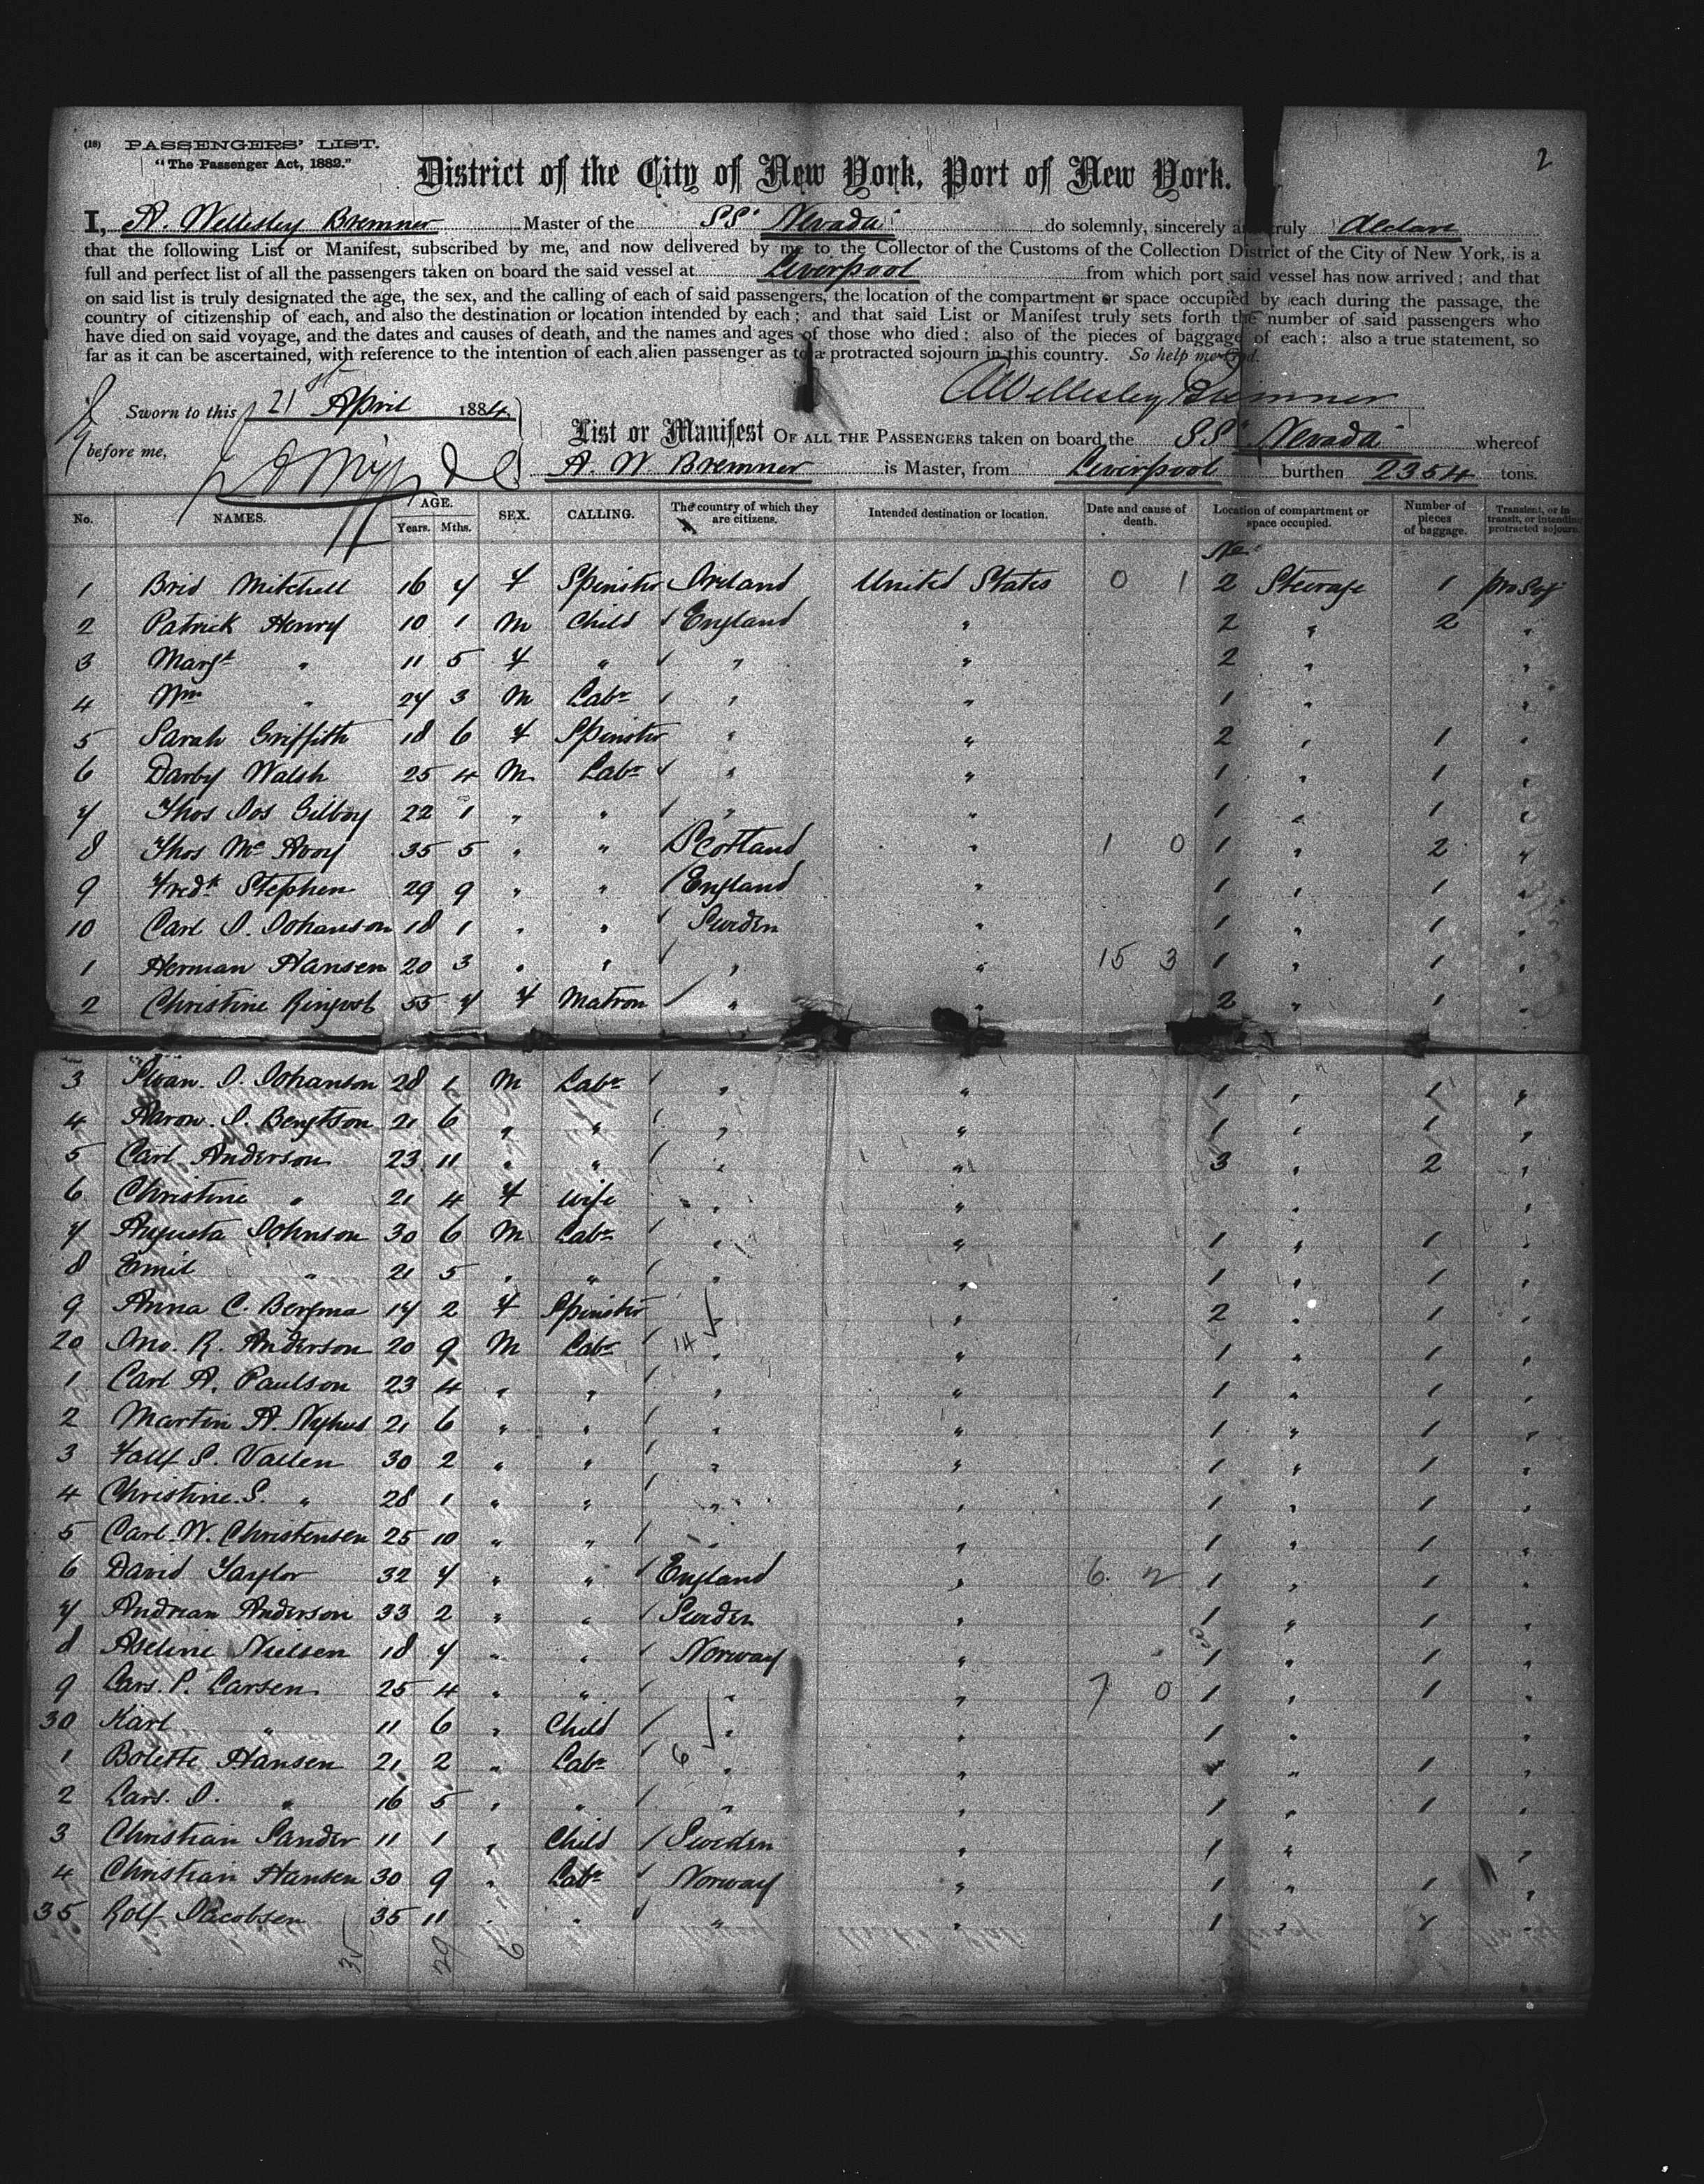 (18) PASSENGERS' LIST.
"The Passenger Act, 1882."
2
District of the City of New York, Port of New York.
I, A. Wellesley Bremner Master of the SS. Nevada do solemnly, sincerely and truly declare
that the following List or Manifest, subscribed by me, and now delivered by me to the Collector of the Customs of the Collection District of the City of New York, is a
full and perfect list of all the passengers taken on board the said vessel at Liverpool from which port said vessel has now arrived; and that
on said list is truly designated the age, the sex, and the calling of each of said passengers, the location of the compartment or space occupied by each during the passage, the
country of citizenship of each, and also the destination or location intended by each; and that said List or Manifest truly sets forth the number of said passengers who
have died on said voyage, and the dates and causes of death, and the names and ages of those who died; also of the pieces of baggage of each; also a true statement, so
far as it can be ascertained, with reference to the intention of each alien passenger as to a protracted sojourn in this country. So help me God.
AWellesley Bremner
Sworn to this 21st April 1884,
before me,
List or Manifest OF ALL THE PASSENGERS taken on board the SS. Nevada whereof
A. W. Bremner is Master, from Liverpool burthen 2354 tons.
No. NAMES. AGE. Years. Mths. SEX. CALLING. The country of which they are citizens. Intended destination or location. Date and cause of death. Location of compartment or space occupied. Number of pieces of baggage. Transient, or in transit, or intending protracted sojourn.
No.
1 Brid Mitchell 16 7 F Spinster Ireland United States 0 1 2 Steerage 1 Pro Soj
2 Patrick Henry 10 1 M Child England " 2 " 2 "
3 Margt " 11 5 F " " " 2 " "
4 Wm " 27 3 M Labr " " 1 " "
5 Sarah Griffith 18 6 F Spinster " " 2 " 1 "
6 Darby Walsh 25 4 M Labr " " 1 " 1 "
7 Thos Jos Gilboy 22 1 " " " " 1 " 1 "
8 Thos Mc Avoy 35 5 " " Scotland " 1 0 1 " 2 "
9 Fredk Stephen 29 9 " " England " 1 " 1 "
10 Carl J. Johanson 18 1 " " Sweden " 1 " 1 "
1 Herman Hansen 20 3 " " " " 15 3 1 " 1 "
2 Christine 55 7 F Matron " " 2 " 1 "
3 Swan. J. Johanson 28 1 M Labr " " 1 " 1 "
4 Aaron. J. Bengtson 21 6 " " " " 1 " 1 "
5 Carl Anderson 23 11 " " " " 3 " 2 "
6 Christine " 21 4 F Wife " " " "
7 Augusta Johnson 30 6 M Labr " " 1 " 1 "
8 Emil " 21 5 " " " " 1 " 1 "
9 Anna C. Bergma 17 2 F Spinster " " 2 " 1 "
20 Jno. R. Anderson 20 9 M Labr 14 " " 1 " 1 "
1 Carl A. Paulson 23 4 " " " " 1 " 1 "
2 Martin A. Nyhus 21 6 " " " " 1 " 1 "
3 S. Vallen 30 2 " " " " 1 " 1 "
4 Christine. S. " 28 1 " " " " 1 " 1 "
5 Carl. W. Christensen 25 10 " " " " 1 " 1 "
6 David Taylor 32 7 " " England " 6 2 1 " 1 "
7 Andrean Anderson 33 2 " " Sweden " 1 " 1 "
8 Aseline Nielsen 18 7 " " Norway " 1 " 1 "
9 Lars. P. Larsen 25 4 " " " " 7 0 1 " 1 "
30 Karl " 11 6 " Child " " 1 " "
1 Bolette Hansen 21 2 " Labr 6 " " " 1 "
2 Lars. J. " 16 5 " " " " 1 " 1 "
3 Christian Sander 11 1 " Child Sweden " 1 " "
4 Christian Hansen 30 9 " Labr Norway " 1 " 1 "
35 Rolf Jacobsen 35 11 " " " " 1 " "
35 29 6